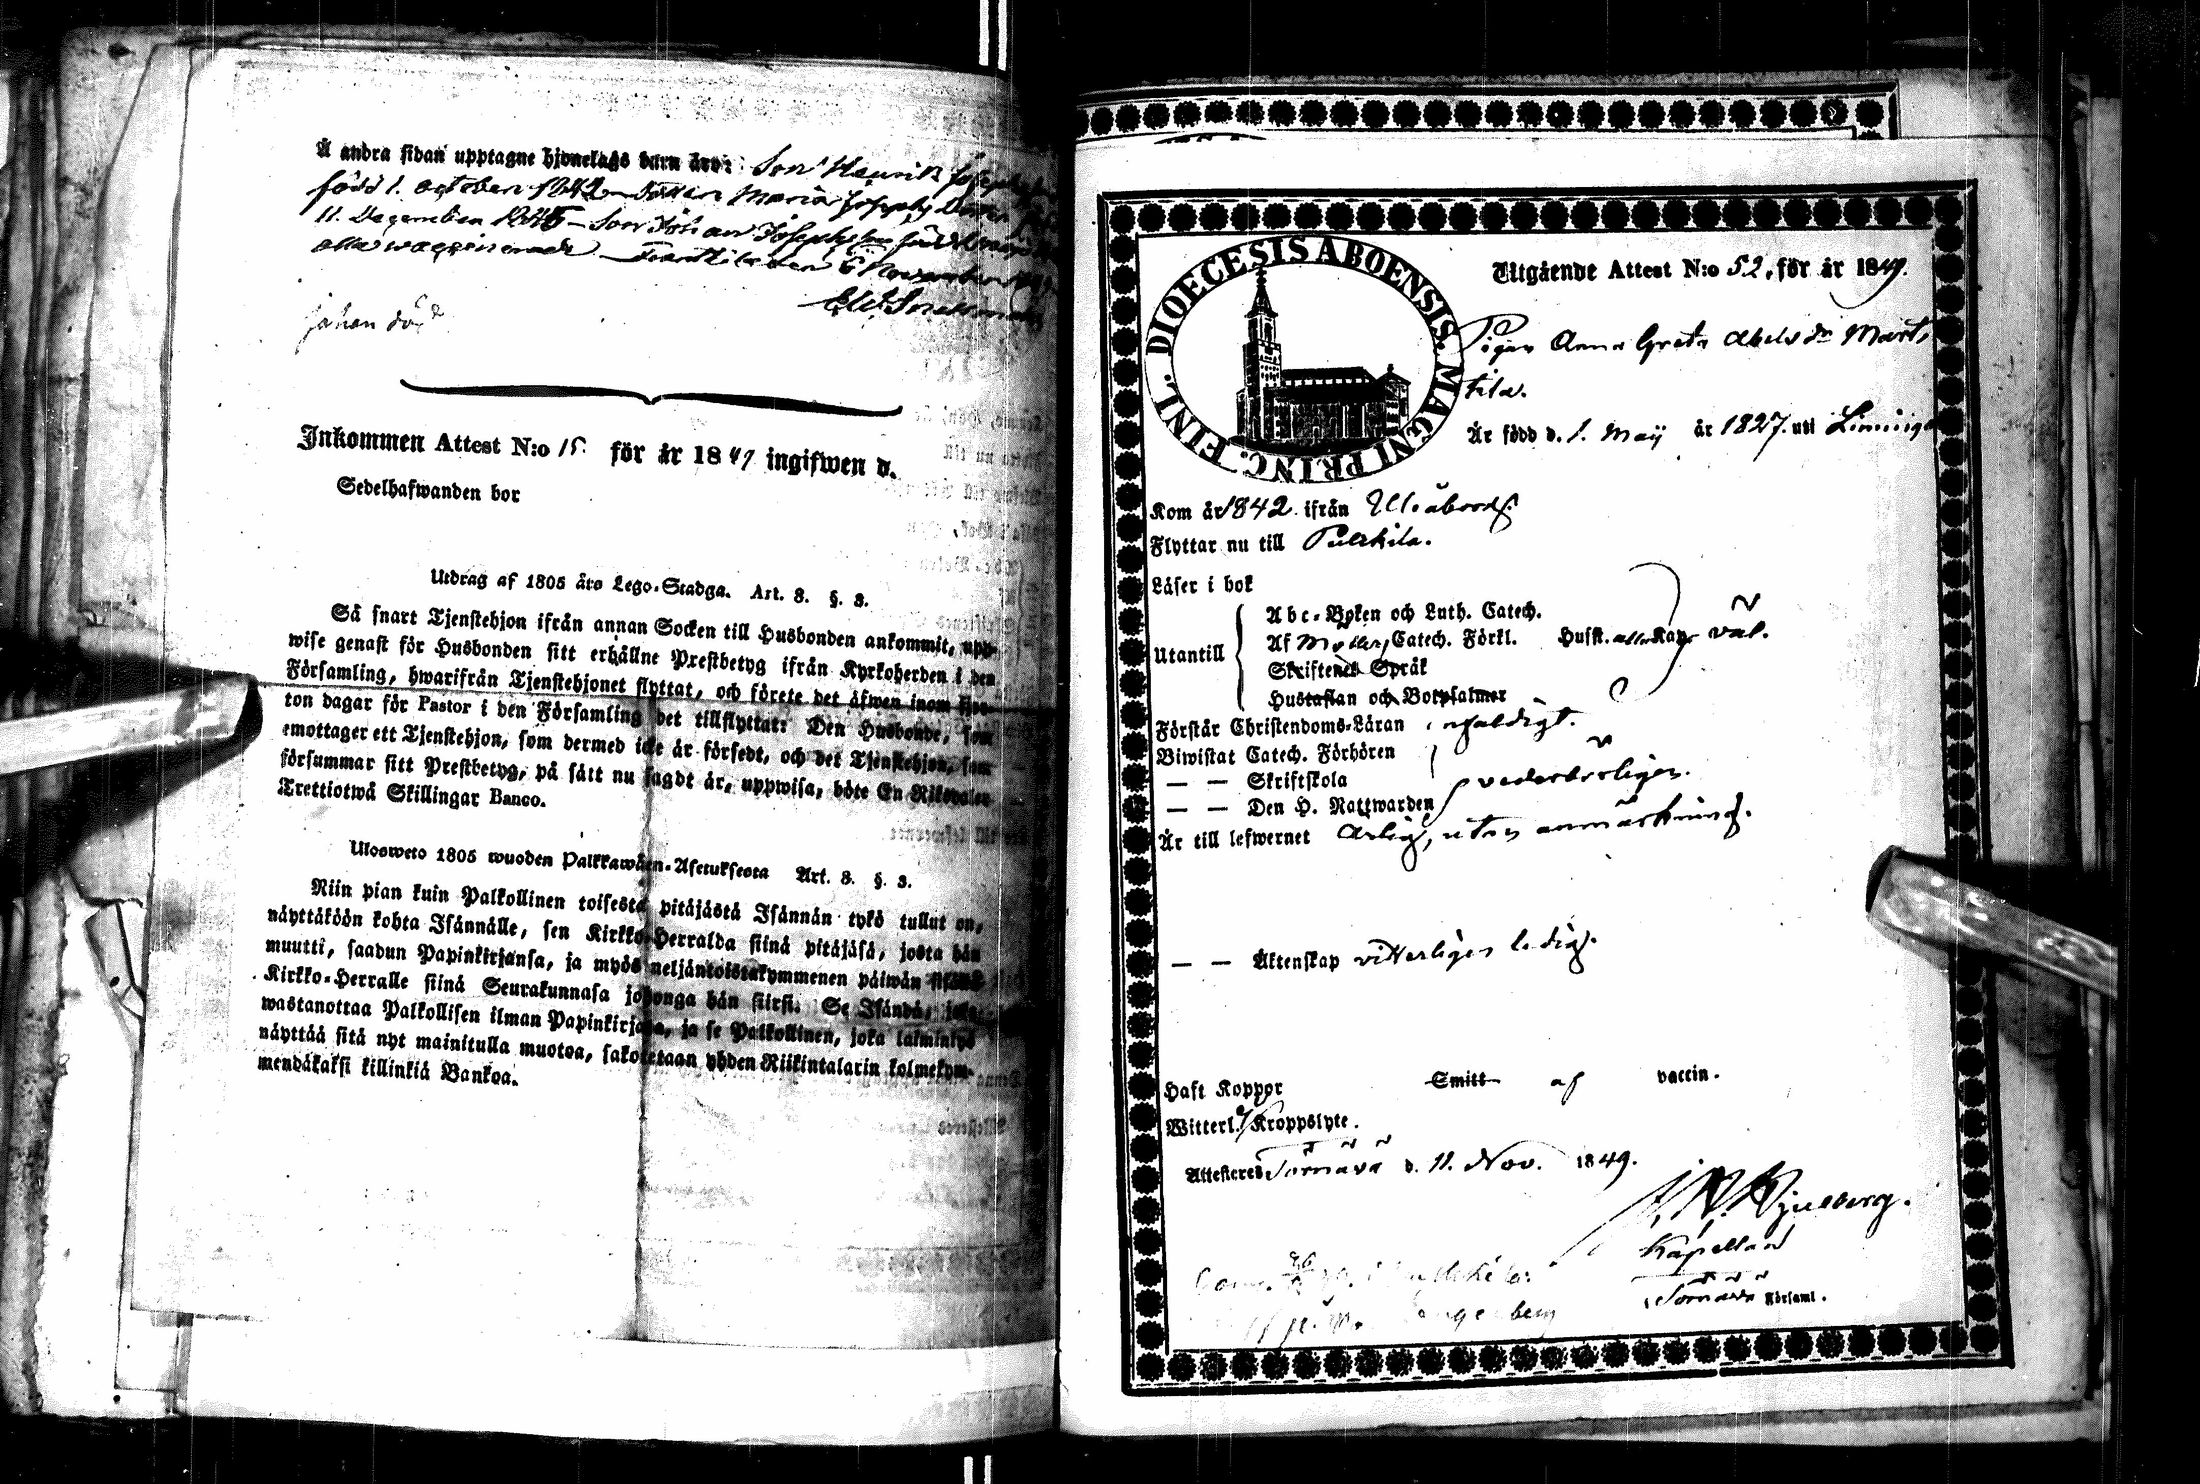 Å andra sidan upptagne hjonelags barn äro: Son Henrik
född 1. october 1842 Maria Josephs Dotter
11. December 1845 – Son Johan Josephsson född
alla waccinerade
6 November
Johan död
Inkommen Attest N:o 15. för år 1849 ingifwen d.
Sedelhafwanden bor
Utdrag af 1805 års Lego-Stadga. Art. 8. §. 3.
Så snart Tjenstehjon ifrån annan Socken till Husbonden ankommit, upp-
wise genast för Husbonden sitt erhållne Prestbetyg ifrån Kyrkoherden i den
Församling, hwarifrån Tjenstehjonet flyttat, och förete det äfwen inom fjor-
ton dagar för Pastor i den Församling det tillflyttat: Den Husbonde, som
emottager ett Tjenstehjon, som dermed icke är försedt, och det Tjenstehjon, som
försummar sitt Prestbetyg, på sätt nu sagdt är, uppwisa, böte En Riksdaler
Trettiotwå Skillingar Banco.
Ulosweto 1805 wuoden Palkkawäen-Asetuksesta Art. 8. §. 3.
Niin pian kuin Palkollinen toisesta pitäjästä Isännän tykö tullut on,
näyttäköön kohta Isännälle, sen Kirkko-Herralda siinä pitäjäsä, josta hän
muutti, saadun Papinkirjansa, ja myös neljäntoistakymmenen päiwän
Kirkko-Herralle siinä Seurakunnasa johonga hän siirsi. Se Isändä, joka
wastanottaa Palkollisen ilman Papinkirjata, ja se Palkollinen, joka laiminlyö
näyttää sitä nyt mainitulla muotoa, sakotetaan yhden Riikintalarin kolmekym-
mendäkaksi killinkiä Bankoa.
DIOECESIS ABOENSIS. MAGNI PRINC. FINL.
Utgående Attest N:o 52. för år 1849.
Pigan Anna Greta Abelsdr Mart-
tila.
Är född d. 1. Maij år 1827. uti Limingo
Kom år 1842 ifrån Uleåborg.
Flyttar nu till Pulkkila.
Läser i bok
Utantill
Abc-Boken och Luth. Catech.
Af Möllers Catech. Förkl. Hust. väl.
Skriftenes Språk
Hustaflan och Botpsalmer
Förstår Christendoms-Läran enfaldigt.
Biwistat Catech. Förhören
— — Skriftskola vederbörligen.
— — Den H. Nattwarden
Är till lefwernet ärlig, utan anmärkning.
— — Äktenskap vitterligen ledig.
Haft Koppor Smitt af vaccin.
Witterl. Kroppslyte.
Attesteras Tornävä d. 11. Nov. 1849.
Kapellan
i Tornävä Församl.